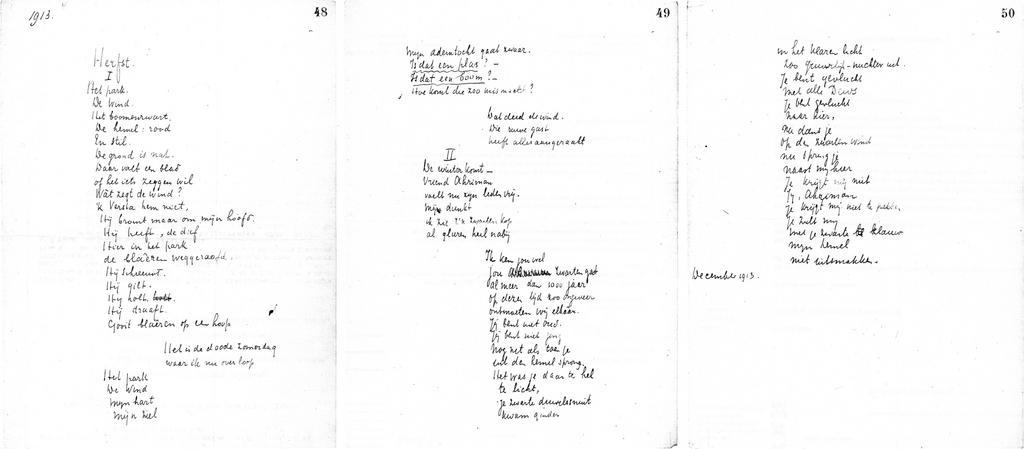 1913.
48
Herfst.
I
Het park.
De wind.
Het boomenzwart.
De hemel: rood
En stil.
De grond is nat.
Daar valt een blad
of het iets zeggen wil
Wat zegt de wind?
'k Versta hem niet,
Hij bromt maar om mijn hoofd.
Hij heeft, de dief
Hier in het park
de blaêren weggeroofd.
Hij schreeuwt.
Hij gilt.
Hij holt.
Hij draaft.
Gooit blaêren op een hoop
Het is de doode zomerdag
waar ik nu over loop
Het park
De wind
mijn hart
mijn ziel
49
Mijn ademtocht gaat zwaar.
Is dat een plas? –
Is dat een boom? –
Hoe komt die zoo mismaakt?
Dat deed de wind.
Die ruwe gast
heeft alles aangeraakt
II
De winter komt –
Vriend Ahriman
voelt nu zijn leden vrij.
Mij dunkt
ik zie z'n zwarten kop
al glieren heel nabij
Ik ken jou wel
jou zwarten gast
al meer dan 1000 jaar
op dezen tijd zoo ongeveer
ontmoeten wij elkaar.
Jij bent niet oud.
Jij bent niet jong
Nog net als toen je
uit den hemel sprong.
Het was je daar te hel
te licht,
je zwarte duivelssnuit
kwam ginder
50
in het klaren licht
zoo gruwelijk-nuchter uit.
Je bent gevlucht
met alle Dews
Je bent gevlucht
naar hier,
nu dans je
op den zwarten wind
nu spring je
naast mij hier
Je krijgt mij niet
Jij, Ahriman
Je krijgt mij niet te pakken
Je zult mij
met je zwarte klauw
mijn hemel
niet uitsmakken.
December 1913.